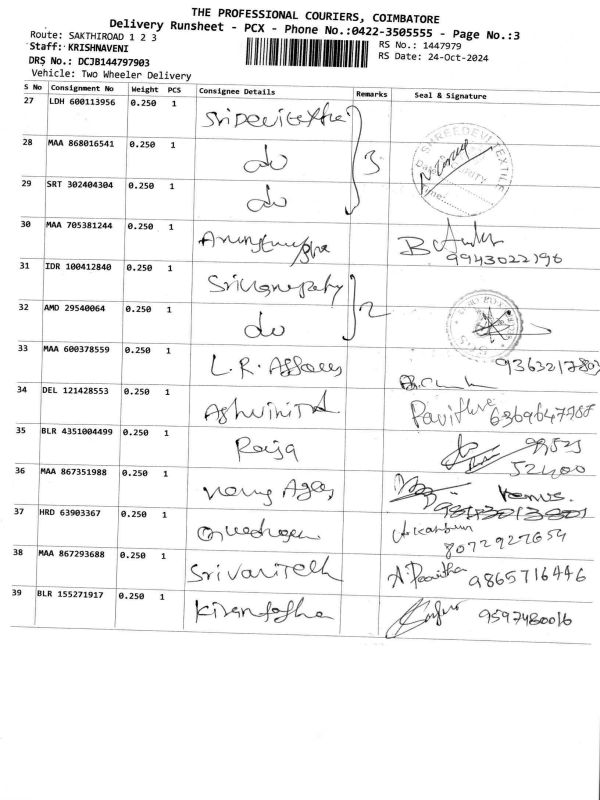 THE PROFESSIONAL COURIERS, COIMBATORE
Delivery Runsheet - PCX - Phone No.:0422-3505555 - Page No.:3
Route: SAKTHIROAD 1 2 3
Staff: KRISHNAVENI
RS No.: 1447979
DRS No.: DCJB144797903
RS Date: 24-Oct-2024
Vehicle: Two Wheeler Delivery
S No Consignment No Weight PCS Consignee Details Remarks Seal & Signature
27 LDH 600113956 0.250 1
SHREEDEVI TEXTILE
28 MAA 868016541 0.250 1 do 3
29 SRT 302404304 0.250 1 do
30 MAA 705381244 0.250 1
9943022196
31 IDR 100412840 0.250 1
32 AMD 29540064 0.250 1 do 2
33 MAA 600378559 0.250 1 L.R.
34 DEL 121428553 0.250 1
35 BLR 4351004499 0.250 1 Raja
52400
36 MAA 867351988 0.250 1 Venus.
37 HRD 63903367 0.250 1
8072927654
38 MAA 867293688 0.250 1 9865716446
39 BLR 155271917 0.250 1 9597480016